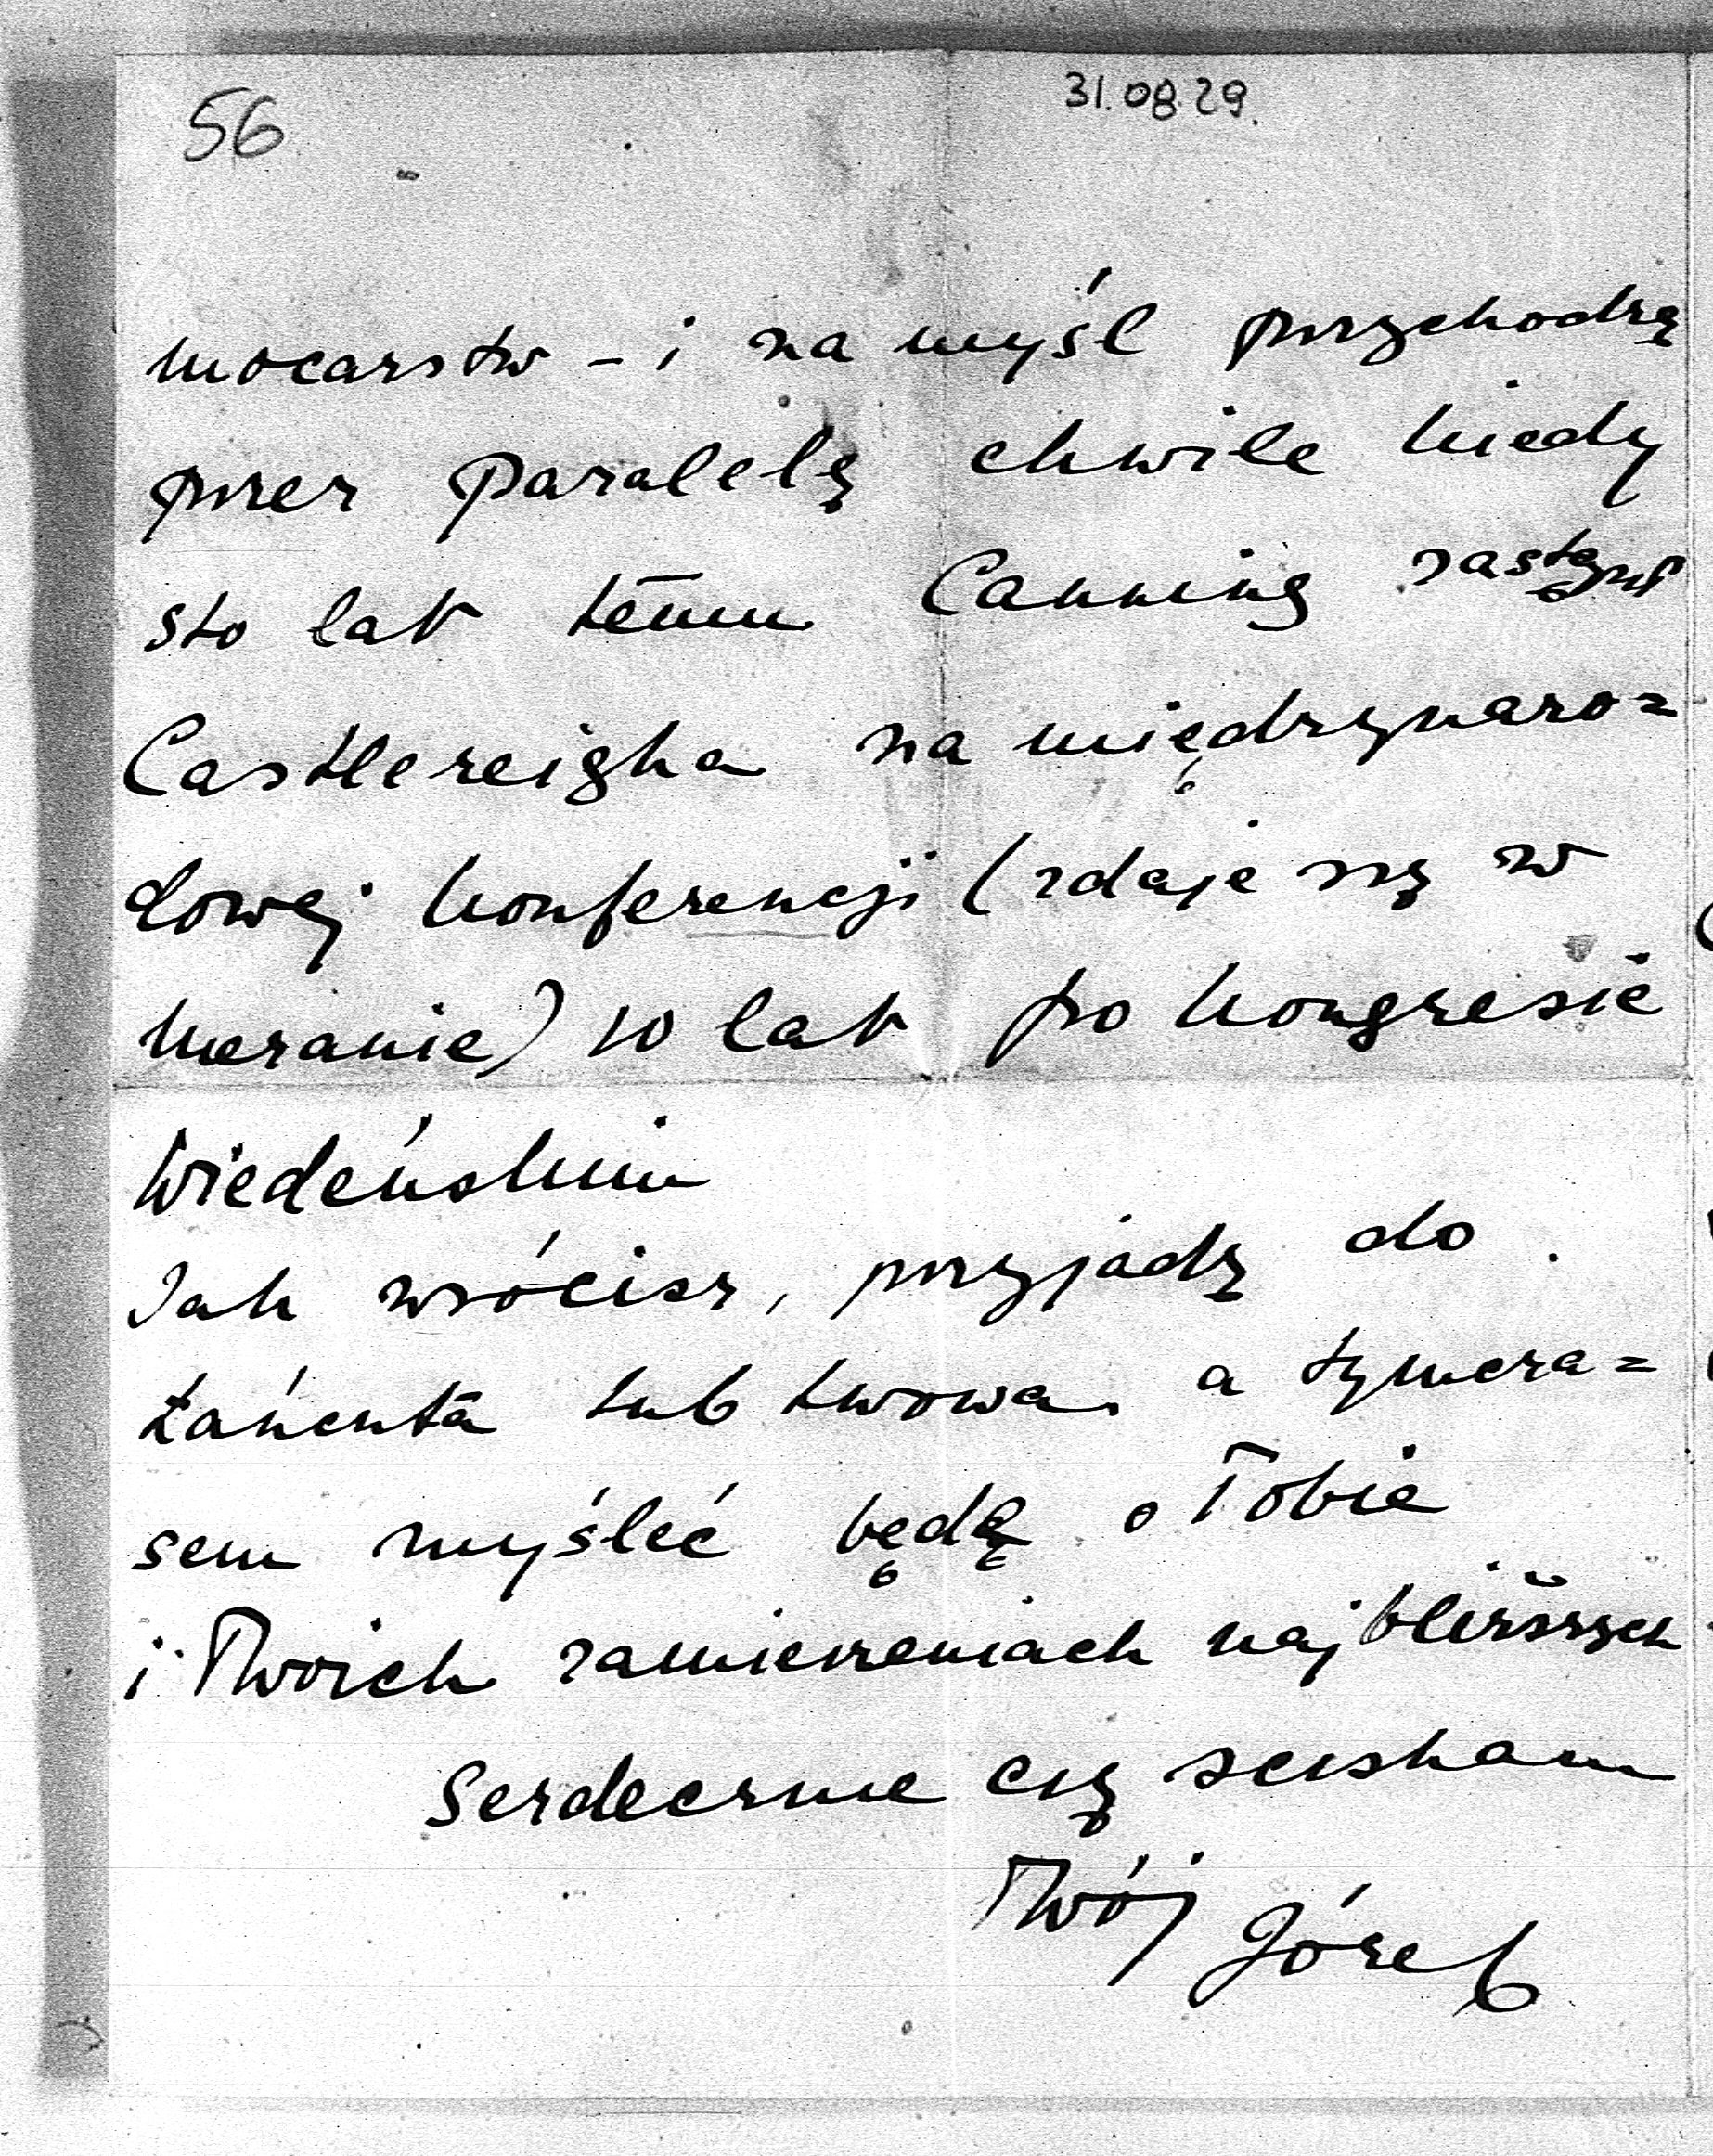 56
31.08.29.
mocarstw – i na myśl przychodzą
przez paralelę chwile kiedy
sto lat temu Canning zastąpił
Castlereigha na międzynaro=
dowej konferencji (zdaje się w
Weronie) 10 lat po kongresie
Wiedeńskim
Jak wrócisz, przyjadę do
Łańcuta lub Lwowa, a tymcza=
sem myśleć będę o Tobie
i Twoich zamierzeniach najbliższych
Serdecznie cię ściskam
Twój Józef